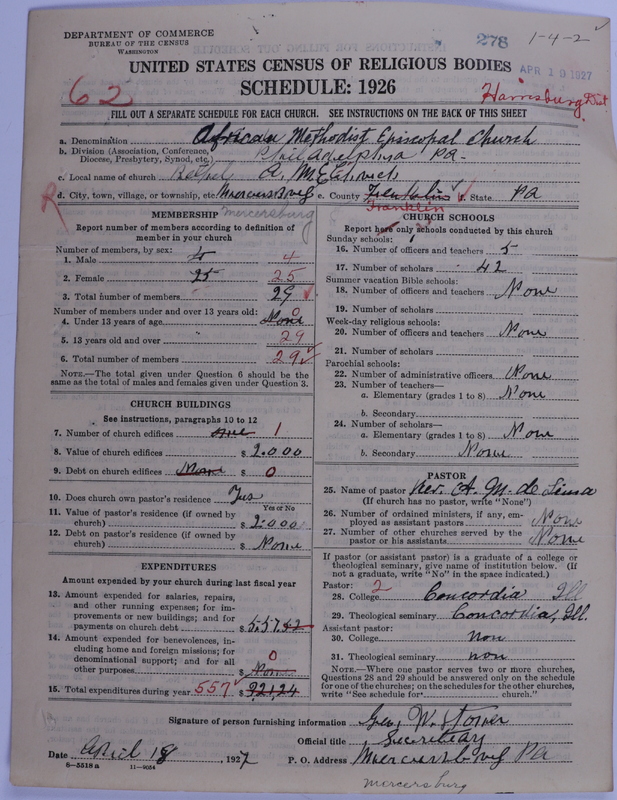 DEPARTMENT OF COMMERCE
BUREAU OF THE CENSUS
WASHINGTON
278
1-4-2
UNITED STATES CENSUS OF RELIGIOUS BODIES
APR 19 1927
SCHEDULE: 1926
62
Harrisburg Dist
FILL OUT A SEPARATE SCHEDULE FOR EACH CHURCH. SEE INSTRUCTIONS ON THE BACK OF THIS SHEET
a. Denomination African Methodist Episcopal Church
b. Division (Association, Conference, Diocese, Presbytery, Synod, etc.) Philadelphia Pa-
c. Local name of church Bethel A. M. E. Church
d. City, town, village, or township, etc. Mercersbvrg e. County Franklin f. State Pa
R
Mercersburg
Franklin
MEMBERSHIP
Report number of members according to definition of member in your church
Number of members, by sex:
1. Male 4 4
2. Female 25 25
3. Total number of members 29
Number of members under and over 13 years old:
4. Under 13 years of age None 0
5. 13 years old and over 29
6. Total number of members 29
NOTE.—The total given under Question 6 should be the same as the total of males and females given under Question 3.
CHURCH BUILDINGS
See instructions, paragraphs 10 to 12
7. Number of church edifices one 1
8. Value of church edifices $ 2.000
9. Debt on church edifices None $ 0
10. Does church own pastor's residence? Yes
Yes or No
11. Value of pastor's residence (if owned by church) $ 2.000
12. Debt on pastor's residence (if owned by church) $ None
EXPENDITURES
Amount expended by your church during last fiscal year
13. Amount expended for salaries, repairs, and other running expenses; for improvements on new buildings; and for payments on church debt $ 557.42
14. Amount expended for benevolences, including home and foreign missions; for denominational support; and for all other purposes $ None 0
15. Total expenditures during year 557 $ 921.24
CHURCH SCHOOLS
Report here only schools conducted by this church
Sunday schools:
16. Number of officers and teachers 5
17. Number of scholars 42
Summer vacation Bible schools:
18. Number of officers and teachers None
19. Number of scholars
Week-day religious schools:
20. Number of officers and teachers None
21. Number of scholars
Parochial schools:
22. Number of administrative officers None
23. Number of teachers—
a. Elementary (grades 1 to 8) None
b. Secondary
24. Number of scholars—
a. Elementary (grades 1 to 8) None
b. Secondary None
PASTOR
25. Name of pastor Rev. A. M. de Lima
(If church has no pastor, write "None")
26. Number of ordained ministers, if any, employed as assistant pastors None
27. Number of other churches served by the pastor or his assistants None
If pastor (or assistant pastor) is a graduate of a college or theological seminary, give name of institution below. (If not a graduate, write "No" in the space indicated.)
Pastor: 2
28. College Concordia Ill
29. Theological seminary Concordia, Ill.
Assistant pastor:
30. College non
31. Theological seminary non
NOTE.—Where one pastor serves two or more churches, Questions 28 and 29 should be answered only on the schedule for one of the churches; on the schedules for the other churches, write "See schedule for church."
Signature of person furnishing information Geo, W. Stoner
Official title Secretary
Date April 18, 1927 P. O. Address Mercersbvrg Pa
8-5518a 11-9054
mercersburg